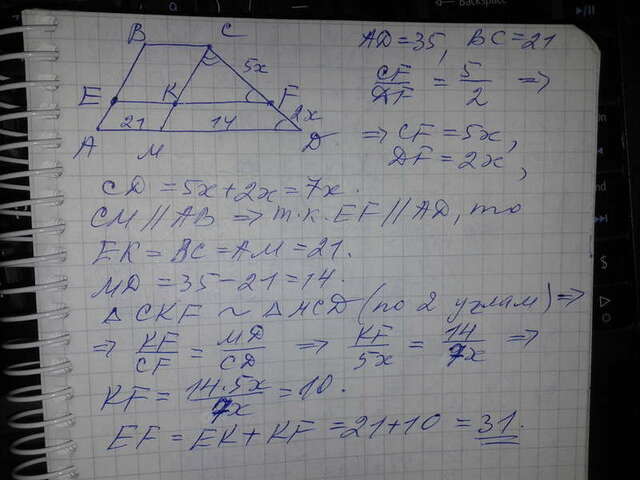 B C AD = 35, BC = 21
5x CF/DF = 5/2 =>
E K F
21 14 2x => CF = 5x,
A M D DF = 2x,
CD = 5x + 2x = 7x.
CM // AB => т.к. EF // AD, то
EK = BC = AM = 21.
MD = 35 - 21 = 14.
△ CKF ~ △ MCD (по 2 углам) =>
=> KF/CF = MD/CD => KF/5x = 14/7x =>
KF = 14·5x/7x = 10.
EF = EK + KF = 21 + 10 = 31.